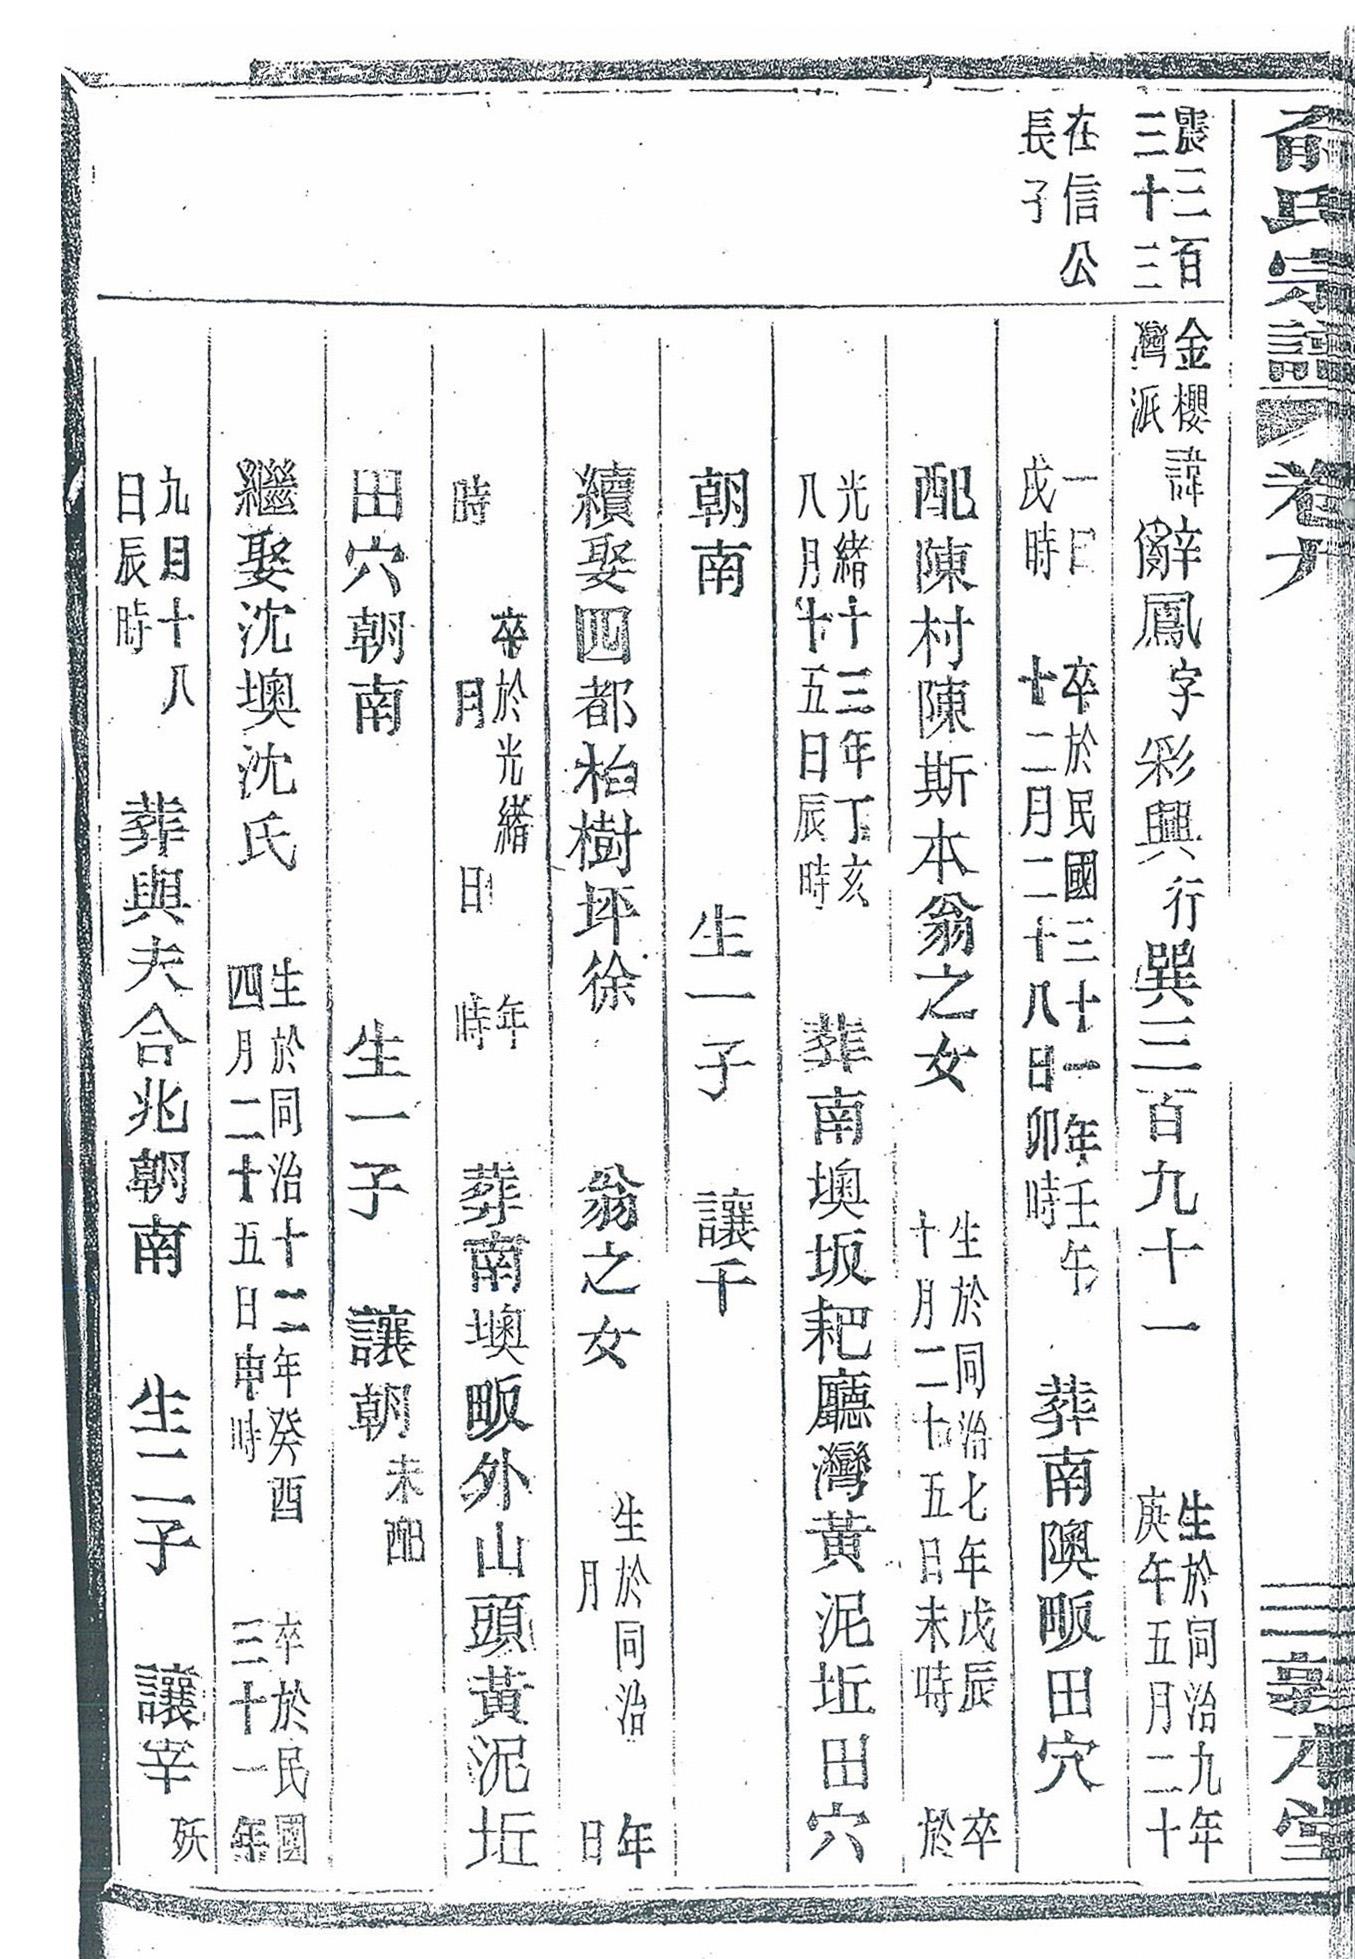 俞氏宗譜 卷九 敦本堂
震三百
三十三
在信公
長子
金櫻
灣派
諱辭鳳字彩興行巽三百九十一
生於同治九年
庚午五月二十
一日
戌時
卒於民國三十一年壬午
十二月二十八日卯時
葬南隩畈田穴
配陳村陳斯本翁之女
生於同治七年戊辰
十月二十五日未時
卒
於
光緒十三年丁亥
八月十五日辰時
葬南墺坂耙廳灣黃泥坵田穴
朝南 生一子 讓千
續娶四都柏樹坪徐 翁之女
生於同治 年
月 日
時
卒於光緒 年
月 日 時
葬南墺畈外山頭黃泥坵
田穴朝南 生一子 讓朝 未配
繼娶沈墺沈氏
生於同治十二年癸酉
四月二十五日申時
卒於民國
三十一年
九月十八
日辰時
葬與夫合兆朝南 生二子 讓宰 殀